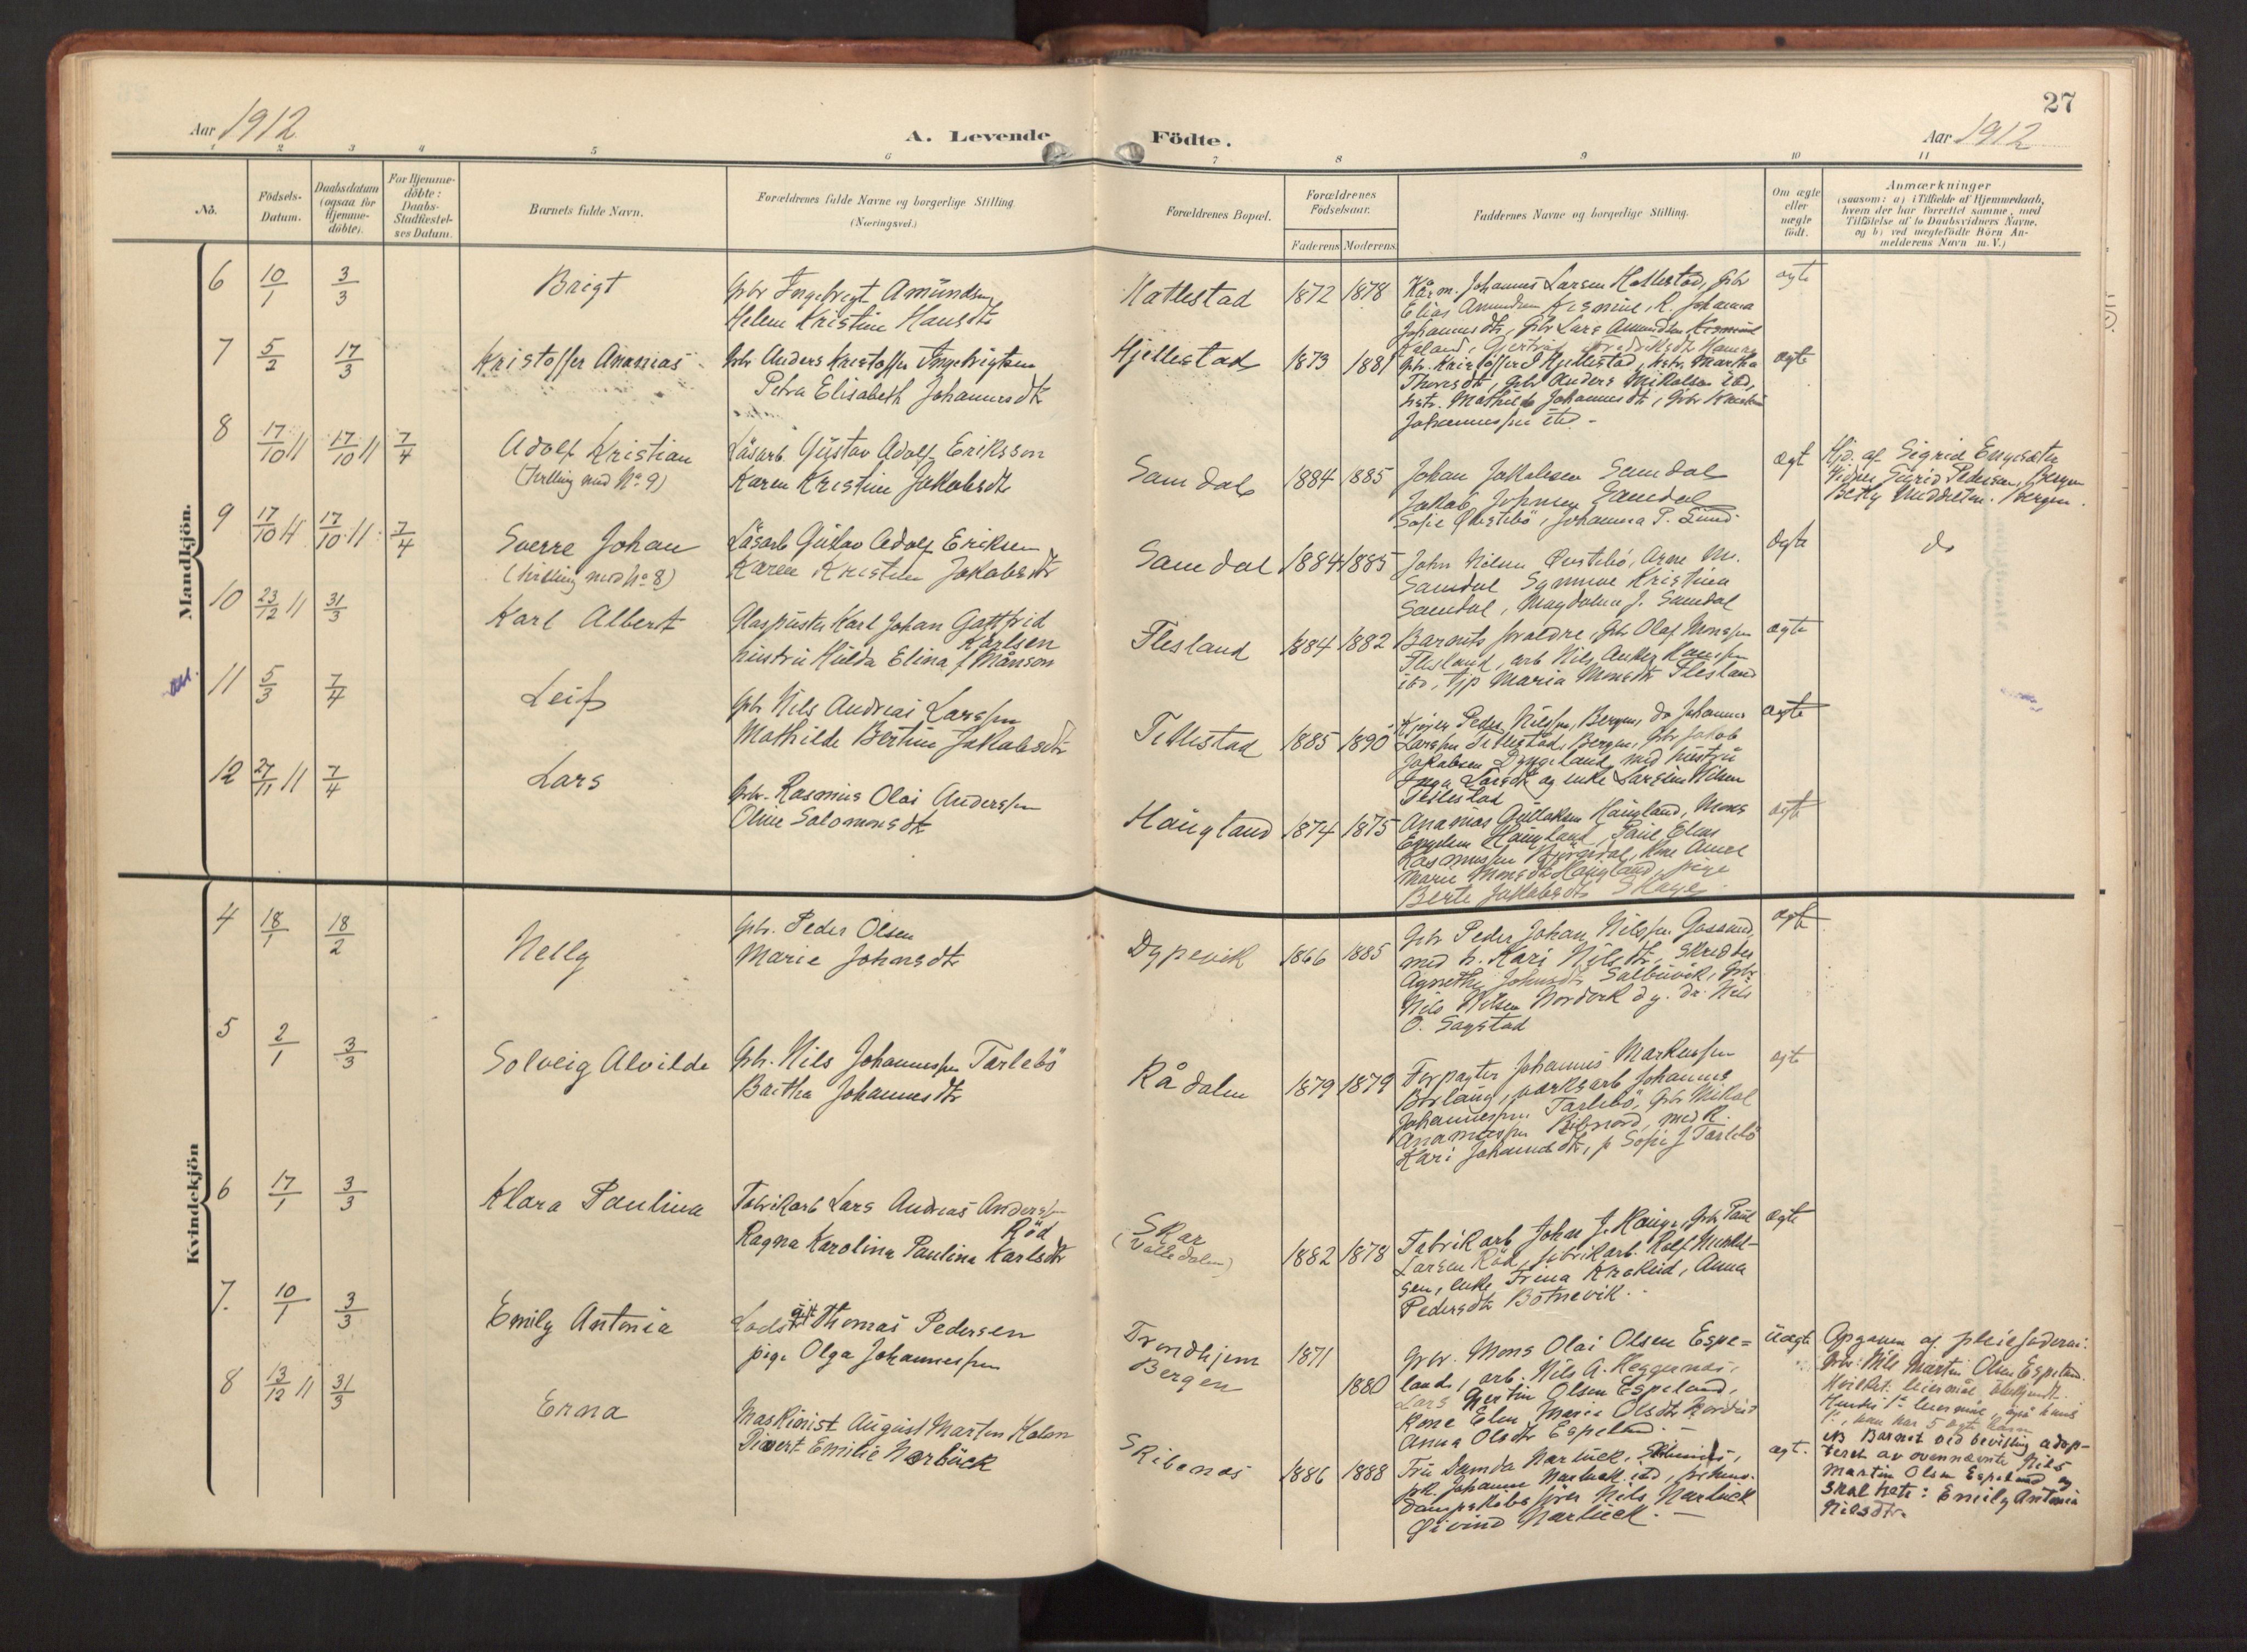 27
Aar 1912.
A. Levende
Födte.
Aar 1912
1 2 3 4 5 6 7 8 9 10 11
No.
Födsels-
Datum.
Daabsdatum
(ogsaa for
Hjemme-
döbte).
For Hjemme-
döbte:
Daabs-
Stadfæstel-
ses Datum.
Barnets fulde Navn.
Forældrenes fulde Navne og borgerlige Stilling
(Næringsvei.)
Forældrenes Bopæl.
Forældrenes
Födselsaar.
Faderens Moderens
Faddernes Navne og borgerlige Stilling.
Om ægte
eller
uægte
födt.
Anmærkninger
(saasom: a) i Tilfælde af Hjemmedaab,
hvem der har forrettet samme, med
Tilföielse af to Daabsvidners Navne,
og b) ved uægtefödte Börn An-
melderens Navn m. V.)
Mandkjön.
6 10/1 3/3 Brigt
Gbr Ingebrigt Amundsen
Helene Kristine Hansdtr
Hatlestad 1872 1878
Kårm. Johannes Larsen Hatlestad, Gbr
Elias Amundsen Kismine, K. Johanna
Johannesdtr, Gbr Lars Amundsen
ægte
7 5/2 17/3 Kristoffer Ananias
Gbr Anders Kristoffer Ingebrigtsen
Petra Elisabeth Johannesdtr
Hjellestad 1873 1881
Gbr. Kristoffer I Hjellestad, hstr. Martha
Thoresdtr, Gbr Anders Mikalsen ibd,
hstr. Mathilde Johannesdtr, Gbr
Johannessen ibd.
ægte
8 17/10 11 17/10 11 7/4 Adolf Kristian
(Tvilling med No 9)
Låsarb. Gustav Adolf Eriksson
Karen Kristine Jakobsdtr
Samdal 1884 1885
Johan Jakobsen Samdal
Jakob Johnsen Samdal
Sofie Øvstebö, Johanna P. Sund
ægt
Hjd. af Sigrid Engesæter
Vidner Gurid Pedersen, Bergen
Betty Middelton. Bergen.
9 17/10 11 17/10 11 7/4 Sverre Johan
(tvilling med No 8)
Låsarb Gustav Adolf Eriksen
Karen Kristine Jakobsdtr
Samdal 1884 1885
John Nilsen Øvstebö, Arne M.
Samdal Synnøve Kristina
Samdal, Magdalena J. Samdal
ægte
do
10 23/12 11 31/3 Karl Albert
Glaspuster Karl Johan Gottfrid
Karlsen
hustru Hulda Elina f. Månson
Flesland 1884 1882
Barnets foraldre, Gbr Olaf Monssen
Flesland, arb Nils Anker Hanssen
ibd, tjp Maria Monsdtr Flesland
ægte
11 5/3 7/4 Leif
Gbr Nils Andreas Larssen
Mathilde Bertine Jakobsdtr
Titlestad 1885 1890
Peder Nilssen, Bergen, do Johannes
Larssen Titlestad, Bergen, Gbr Jakob
Jakobsen Dyngeland med hustru
Inga Larsdtr og enke Larsine Nilsen
Titlestad
ægte
12 27/11 11 7/4 Lars
Gbr. Rasmus Olai Anderssen
Oline Salomonsdtr
Haugland 1874 1875
Ananias Gullaksen Haugland, Mons
Haugland, Paul Elias
Rasmussen, Kone Anne
Marie Monsdtr Haugland, pige
Berte Jakobsdtr Skage.
ægt
Kvindekjön
4 18/1 18/2 Nelly
Gbr. Peder Olsen
Marie Johnsdtr
Dypevik 1866 1885
Gbr Peder Johan Nilssen Gaasand
med h. Kari Nilsdtr,
Agnethe Johnsdtr Salbuvik, Gbr
Nils Nilsen Nordvik dy. do Nils
O. Sagstad
ægt
5 2/1 3/3 Solveig Alvilde
Gbr. Nils Johannessen Tarlebö
Britha Johannesdtr
Rådalen 1879 1879
Forpagter Johannes Markussen
Birlaug, værksarb Johannes
Johannessen Tarlebö, Gbr Mikal
Ananiassen, med K
Kari Johannesdtr, p Sofie J Tarlebö
ægte
6 17/1 3/3 Klara Paulina
Fabrikarb Lars Andreas Anderss
Röd
Ragna Karolina Paulina Karlsdtr
Skar
(Valledalen)
1882 1878
Fabrikarb Johan J. Hauge, Gbr Paul
Larsen Röd, fabrikarb. Rolf
sen, enke Trina Krokeid, Anna
Pedersdtr Botnevik.
ægte
7. 10/1 3/3 Emily Antonia
Lods gift Thomas Pedersen
pige Olga Johannessen
Trondhjem 1871
Bergen 1880
Gbr. Mons Olai Olsen Espe=
land, arb. Nils A. Heggernes,
Lars Martin Olsen Espeland,
Kone Elen Marie Olsdtr
Anna Olsdtr Espeland.
uægte
Opgaven af pleiefaderen:
Gbr: Nils Martin Olsen Espeland.
NB Barnet ved bevilling adop-
teret av ovennævnte Nils
Martin Olsen Espeland og
skal hete: Emily Antonia
Nilsdtr.
8 13/12 11 31/3 Erna
Maskinist August Martin Holm
Divert Emilie Narbuck
Skibenes 1886 1888
Fru Damda Narbuck, Skibenes,
frk. Johanne Narbuck ibd,
Dampskibsfører Nils Narbuck
Øivind Narbuck.
ægt.